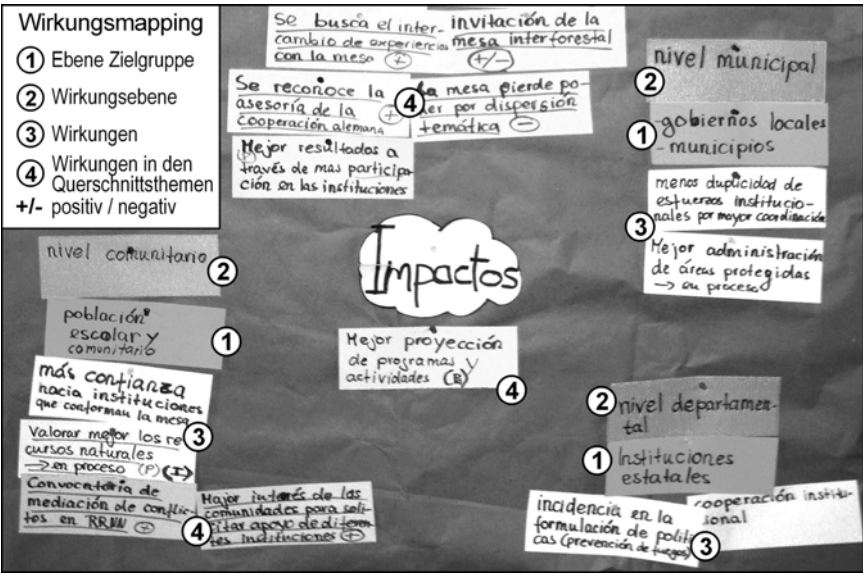 Wirkungsmapping
1 Ebene Zielgruppe
2 Wirkungsebene
3 Wirkungen
4 Wirkungen in den
Querschnittsthemen
+/- positiv / negativ
Se busca el inter-
cambio de experiencias
con la mesa (+)
invitación de la
mesa interforestal
(+/-)
Se reconoce la
asesoría de la
cooperación alemana (+)
4
La mesa pierde po-
der por dispersión
temática (-)
Mejor resultados a
través de mas participa-
ción en las instituciones
nivel municipal
2
1
-gobiernos locales
-municipios
menos duplicidad de
esfuerzos institucio-
nales por mayor coordinación
3
Mejor administración
de áreas protegidas
→ en proceso
Impactos
nivel comunitario
2
población
escolar y
comunitario
1
más confianza
hacia instituciones
que conforman la mesa
3
Valorar mejor los re
cursos naturales
→ en proceso (P) (I)
Convocatoria de
mediación de conflic-
tos en RRNN (+)
4
Major interés de las
comunidades para soli-
citar apoyo de diferen-
tes instituciones (+)
Mejor proyección
de programas y
actividades (E)
4
2
nivel departamen-
tal
1
Instituciones
estatales
incidencia en la
formulación de políti
cas (prevención de fuegos)
3
cooperación institu-
sional